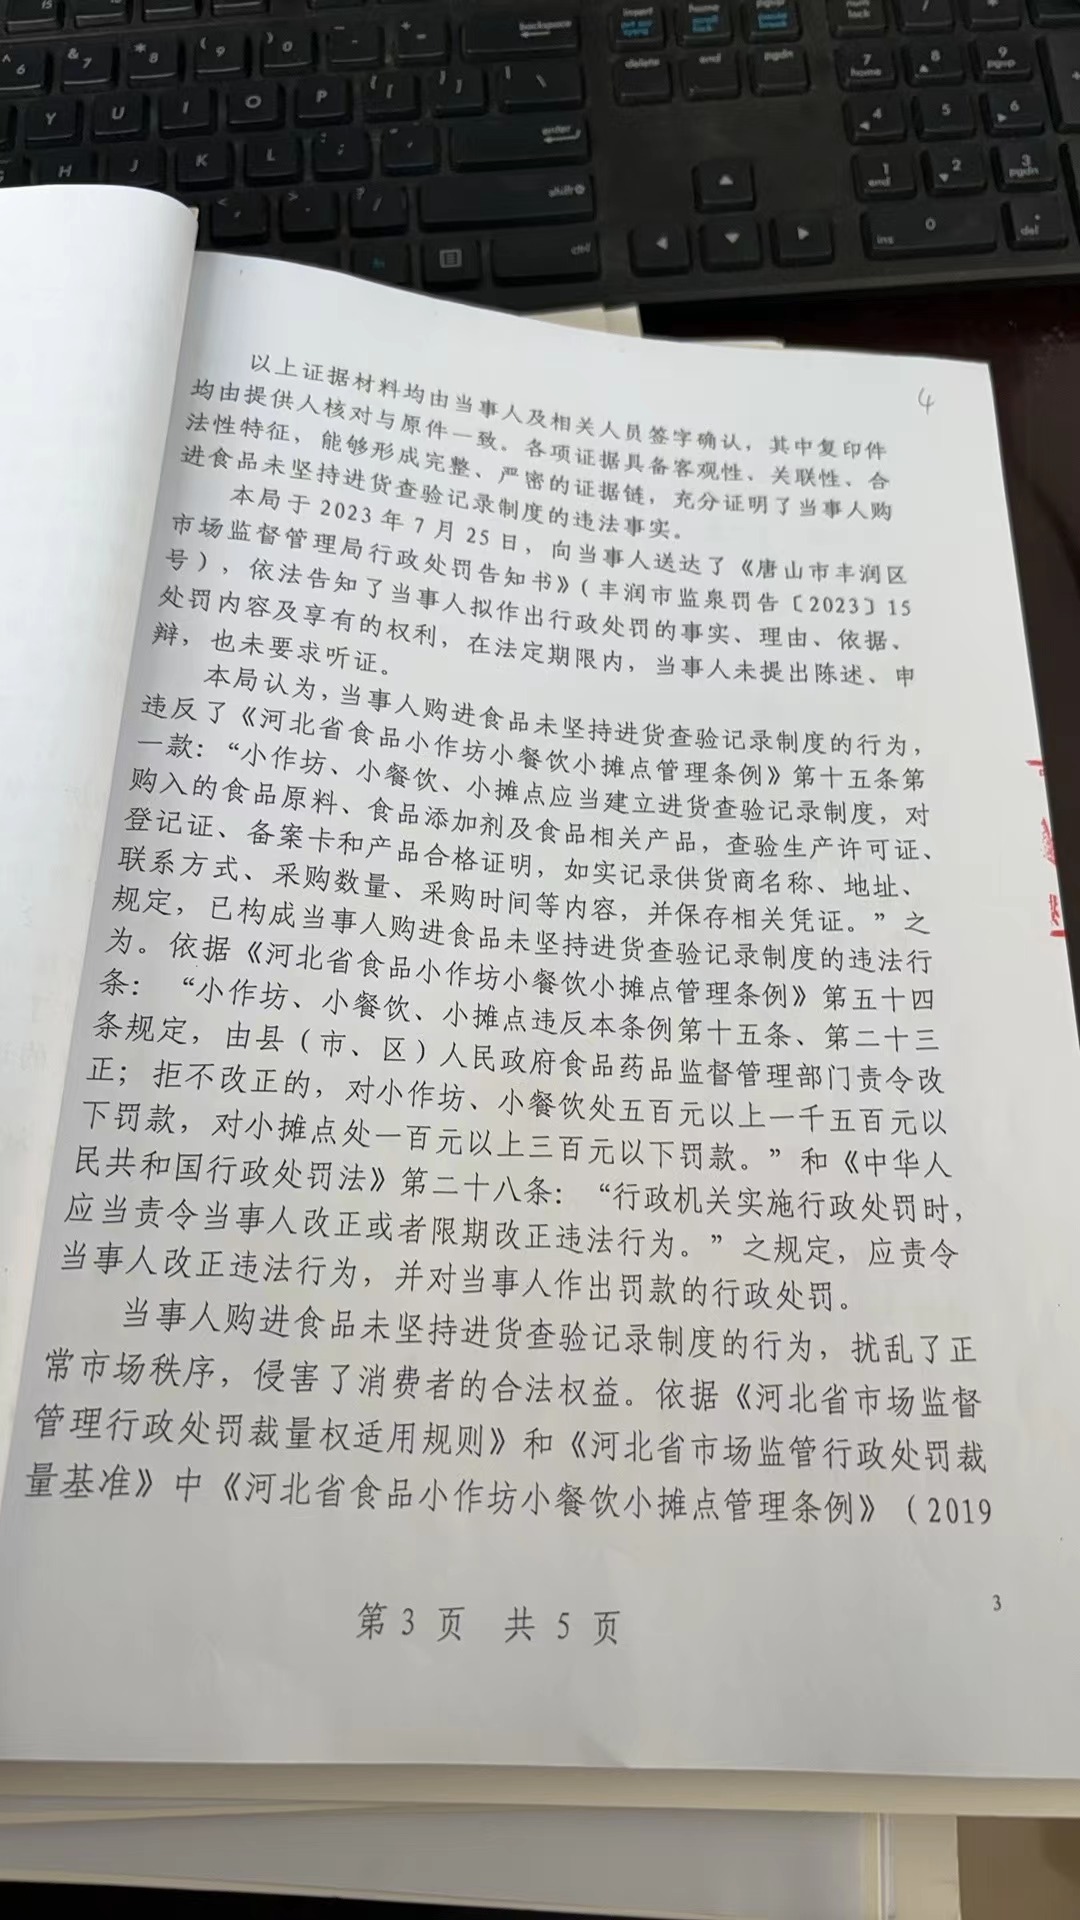 4
以上证据材料均由当事人及相关人员签字确认，其中复印件
均由提供人核对与原件一致。各项证据具备客观性、关联性、合
法性特征，能够形成完整、严密的证据链，充分证明了当事人购
进食品未坚持进货查验记录制度的违法事实。
本局于2023年7月25日，向当事人送达了《唐山市丰润区
市场监督管理局行政处罚告知书》（丰润市监泉罚告〔2023〕15
号），依法告知了当事人拟作出行政处罚的事实、理由、依据、
处罚内容及享有的权利，在法定期限内，当事人未提出陈述、申
辩，也未要求听证。
本局认为，当事人购进食品未坚持进货查验记录制度的行为，
违反了《河北省食品小作坊小餐饮小摊点管理条例》第十五条第
一款：“小作坊、小餐饮、小摊点应当建立进货查验记录制度，对
购入的食品原料、食品添加剂及食品相关产品，查验生产许可证、
登记证、备案卡和产品合格证明，如实记录供货商名称、地址、
联系方式、采购数量、采购时间等内容，并保存相关凭证。”之
规定，已构成当事人购进食品未坚持进货查验记录制度的违法行
为。依据《河北省食品小作坊小餐饮小摊点管理条例》第五十四
条：“小作坊、小餐饮、小摊点违反本条例第十五条、第二十三
条规定，由县（市、区）人民政府食品药品监督管理部门责令改
正；拒不改正的，对小作坊、小餐饮处五百元以上一千五百元以
下罚款，对小摊点处一百元以上三百元以下罚款。”和《中华人
民共和国行政处罚法》第二十八条：“行政机关实施行政处罚时，
应当责令当事人改正或者限期改正违法行为。”之规定，应责令
当事人改正违法行为，并对当事人作出罚款的行政处罚。
当事人购进食品未坚持进货查验记录制度的行为，扰乱了正
常市场秩序，侵害了消费者的合法权益。依据《河北省市场监督
管理行政处罚裁量权适用规则》和《河北省市场监管行政处罚裁
量基准》中《河北省食品小作坊小餐饮小摊点管理条例》（2019
3
第3页 共5页